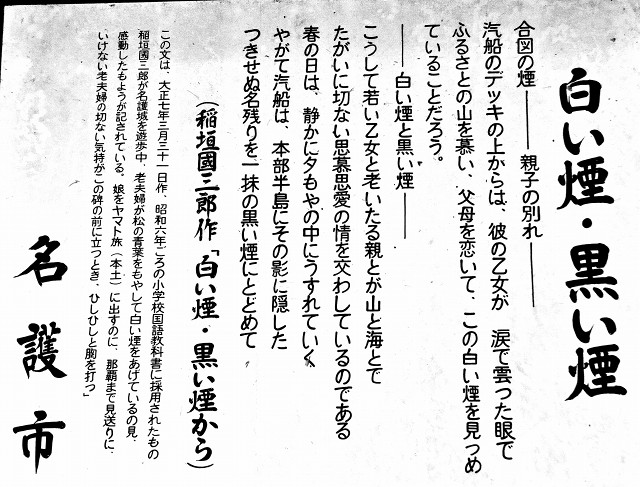 白い煙・黒い煙
合図の煙――親子の別れ――
汽船のデッキの上からは、彼の乙女が 涙で雲つた眼で
ふるさとの山を慕い、父母を恋いて、この白い煙を見つめ
ていることだろう。
――白い煙と黒い煙――
こうして若い乙女と老いたる親とが山と海とで
たがいに切ない思慕思愛の情を交わしているのである
春の日は、静かに夕もやの中にうすれていく
やがて汽船は、本部半島にその影に隠した
つきせぬ名残りを一抹の黒い煙にとどめて
(稲垣國三郎作「白い煙・黒い煙から)
この文は、大正七年三月三十一日作、昭和六年ごろの小学校国語教科書に採用されたもの
稲垣國三郎が名護城を遊歩中、老夫婦が松の青葉をもやして白い煙をあげているの見、
感動したもようが記されている。娘をヤマト旅(本土)に出すのに、那覇まで見送りに、
いけない老夫婦の切ない気持がこの碑の前に立つとき、ひしひしと胸を打つ」
名護市